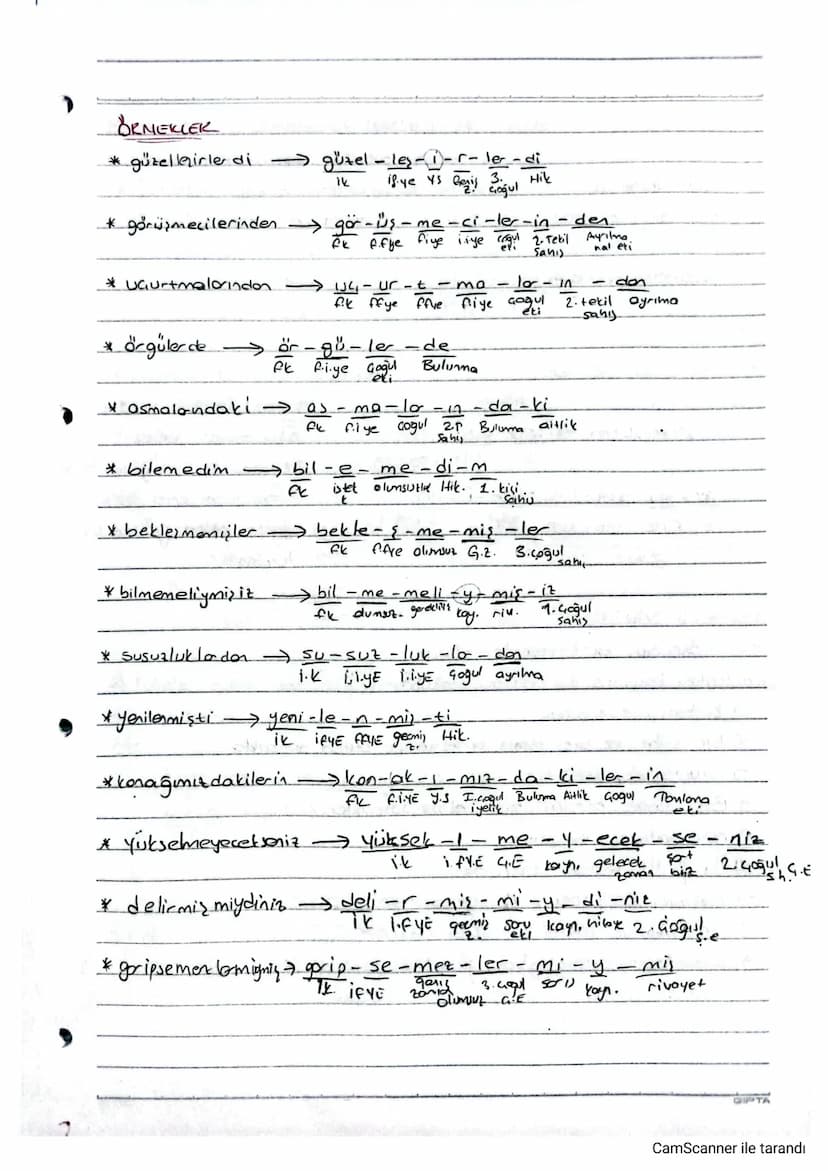 ÖRNEKLER
* güzelleşirlerdi → güzel - leş - i - r - ler - di
ik ifye YS Geniş Z. 3. çoğul Hik
* görüşmecilerinden → gör - üş - me - ci - ler - in - den
fk f.fye fiye iiye çoğul eti 2. Tekil Şahıs Ayrılma hal eti
* uçurtmalarından → uç - ur - t - ma - lar - ın - dan
fk ffye ffye fiye çoğul eti 2. tekil şahıs ayrılma
* örgülerde → ör - gü - ler - de
fk f.i.ye çoğul eti Bulunma
* asmalarındaki → as - ma - lar - ın - da - ki
fk fiye çoğul 2.T Şahış Bulunma aitlik
* bilemedim → bil - e - me - di - m
fk istek olumsuzluk Hik. 1. kişi şahıs
* bekleşmemişler → bekle - ş - me - miş - ler
fk ffye olumsuz G.Z. 3. çoğul şahıs
* bilmemeliymişiz → bil - me - meli - y - miş - iz
fk olumsuz. gereklilik kay. riv. 1. çoğul şahıs
* susuzluklardan → su - suz - luk - lar - dan
i.k i.i.yE i.iyE çoğul ayrılma
* yenilenmişti → yeni - le - n - miş - ti
ik ifYE ffYE geçmiş z. Hik.
* konağımızdakilerin → kon - ak - ı - mız - da - ki - ler - in
fk f.iYE Y.S I. çoğul iyelik Bulunma Aitlik çoğul Tamlama eki
* yükselmeyecekseniz → yüksek - l - me - y - ecek - se - niz
ik i.fY.E Ç.E kayn. gelecek zaman şart 2. çoğul şh. Ç.E
* delirmişmiydiniz → deli - r - miş - mi - y - di - niz
ik i.fYE geçmiş z. soru eki kayn. hikaye 2. çoğul ş.e
* garipsemezlermiymiş → garip - se - mez - ler - mi - y - miş
ik ifYE geniş zaman olumsuz 3. çoğul Ç.E soru kayn. rivayet
GIPTA
CamScanner ile tarandı